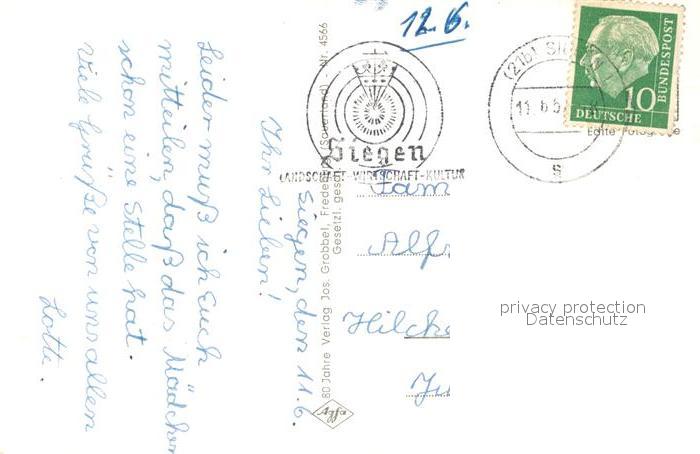 12.6.
Siegen, den 11.6.
Ihr Lieben!
Leider muß ich Euch
mitteilen, daß das Mädchen
schon eine Stelle hat.
Viele Grüße von uns allen
Lotte.
80 Jahre Verlag Jos. Grobbel, Fredeburg (Sauerland) · Nr. 4566
Gesetzl. gesch.
Agfa
Siegen
LANDSCHAFT-WIRTSCHAFT-KULTUR
(21b) SIE
11.6.5
g
10
DEUTSCHE
BUNDESPOST
Echte Fotog
Fam
Alf
Hilch
privacy protection
Datenschutz